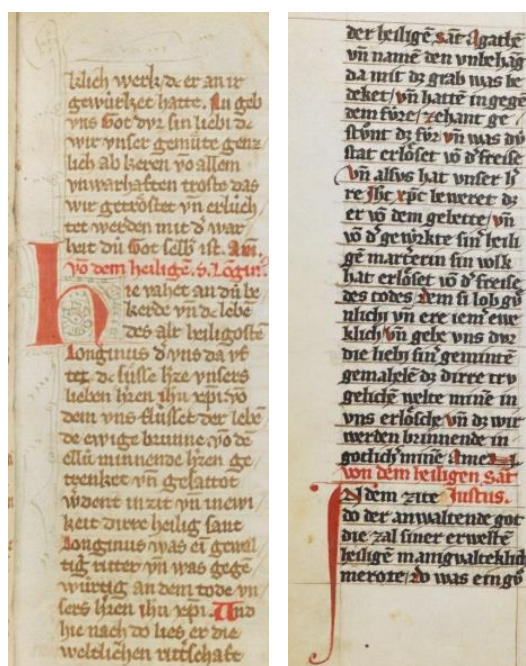 klich werk dc er an ir
gewürket hatte. Nu geb
vns Got dvr sin liebi dc
wir vnser gemüte genz
lich ab keren vo allem
vnwarhaften troste das
wir getröstet vn̄ erlüch
tet werden mit d' war
heit dü Got selb ist. Am̄
vō dem heiligē. s. Lōgin
hie vahet an dü be
kerde vn̄ dc lebē
des alr heiligostē
Longinus d' vns da vf
tet dc süsse h'ze vnsers
lieben h'ren ihu xpi vō
dem vns flüsset der lebē
de ewige brunne vō dē
ellü minnende h'zen ge
trenket vn̄ gesattot
w'dent in zit vn̄ in ewi
keit dirre heilig sant
Longinus was ei gewal
tig ritter vn̄ was gege
würtig an dem tode vn
sers h'ren ihu xpi. Und
hie nach do lies er die
weltlichen ritterschaft
der heiligē sāt Agathē
vn̄ namē den vnbehāg
da mit dz grab was be
deket / vn̄ hattē in gege
dem füre / zehant ge
stůnt dz für vn̄ was dü
stat erlöset vō d' freise
vn̄ alsvs hat vnser h'
re Jhc xpc beweret dz
er vō dem gebette / vn̄
vō d' gewürkte sin' heili
gē marterin sin volk
hat erlöset vō d' freise
des todes / dem si lob gů
nlichi vn̄ ere iem' ewe
klich / vn̄ gebe vns dvr
die liebi sin' geminte
gemahelē dz dirre trv
geliche welte minē in
vns erlösche vn̄ dz wir
werden brinnende in
gotlich' minē Amen
von dem heiligen Sāt
IN dem zite Justus.
do der anwaltende got
die zal siner erweltē
heiligē manigvalteklich
merote / do was ein gů